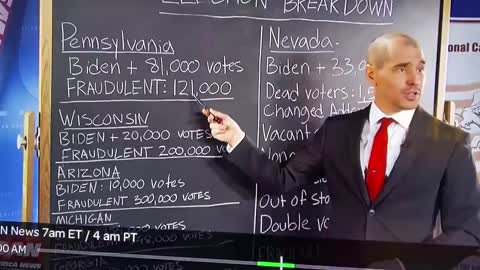 ELECTION BREAKDOWN
Pennsylvania
Biden + 81,000 votes
FRAUDULENT: 121,000
WISCONSIN
BIDEN + 20,000 VOTES
FRAUDULENT 200,000 VO
ARIZONA
BIDEN: 10,000 VOTES
FRAUDULENT 300,000 VOTES
MICHIGAN
VOTES
8,000 VOTES
GEORGIA
Nevada-
Biden + 33,
Dead voters: 1,5
Changed Add
Vacant
Non
Out of st
Double v
FRAUD
onal Ca
N News 7am ET / 4 am PT
:00 AM
ERICA NEWS